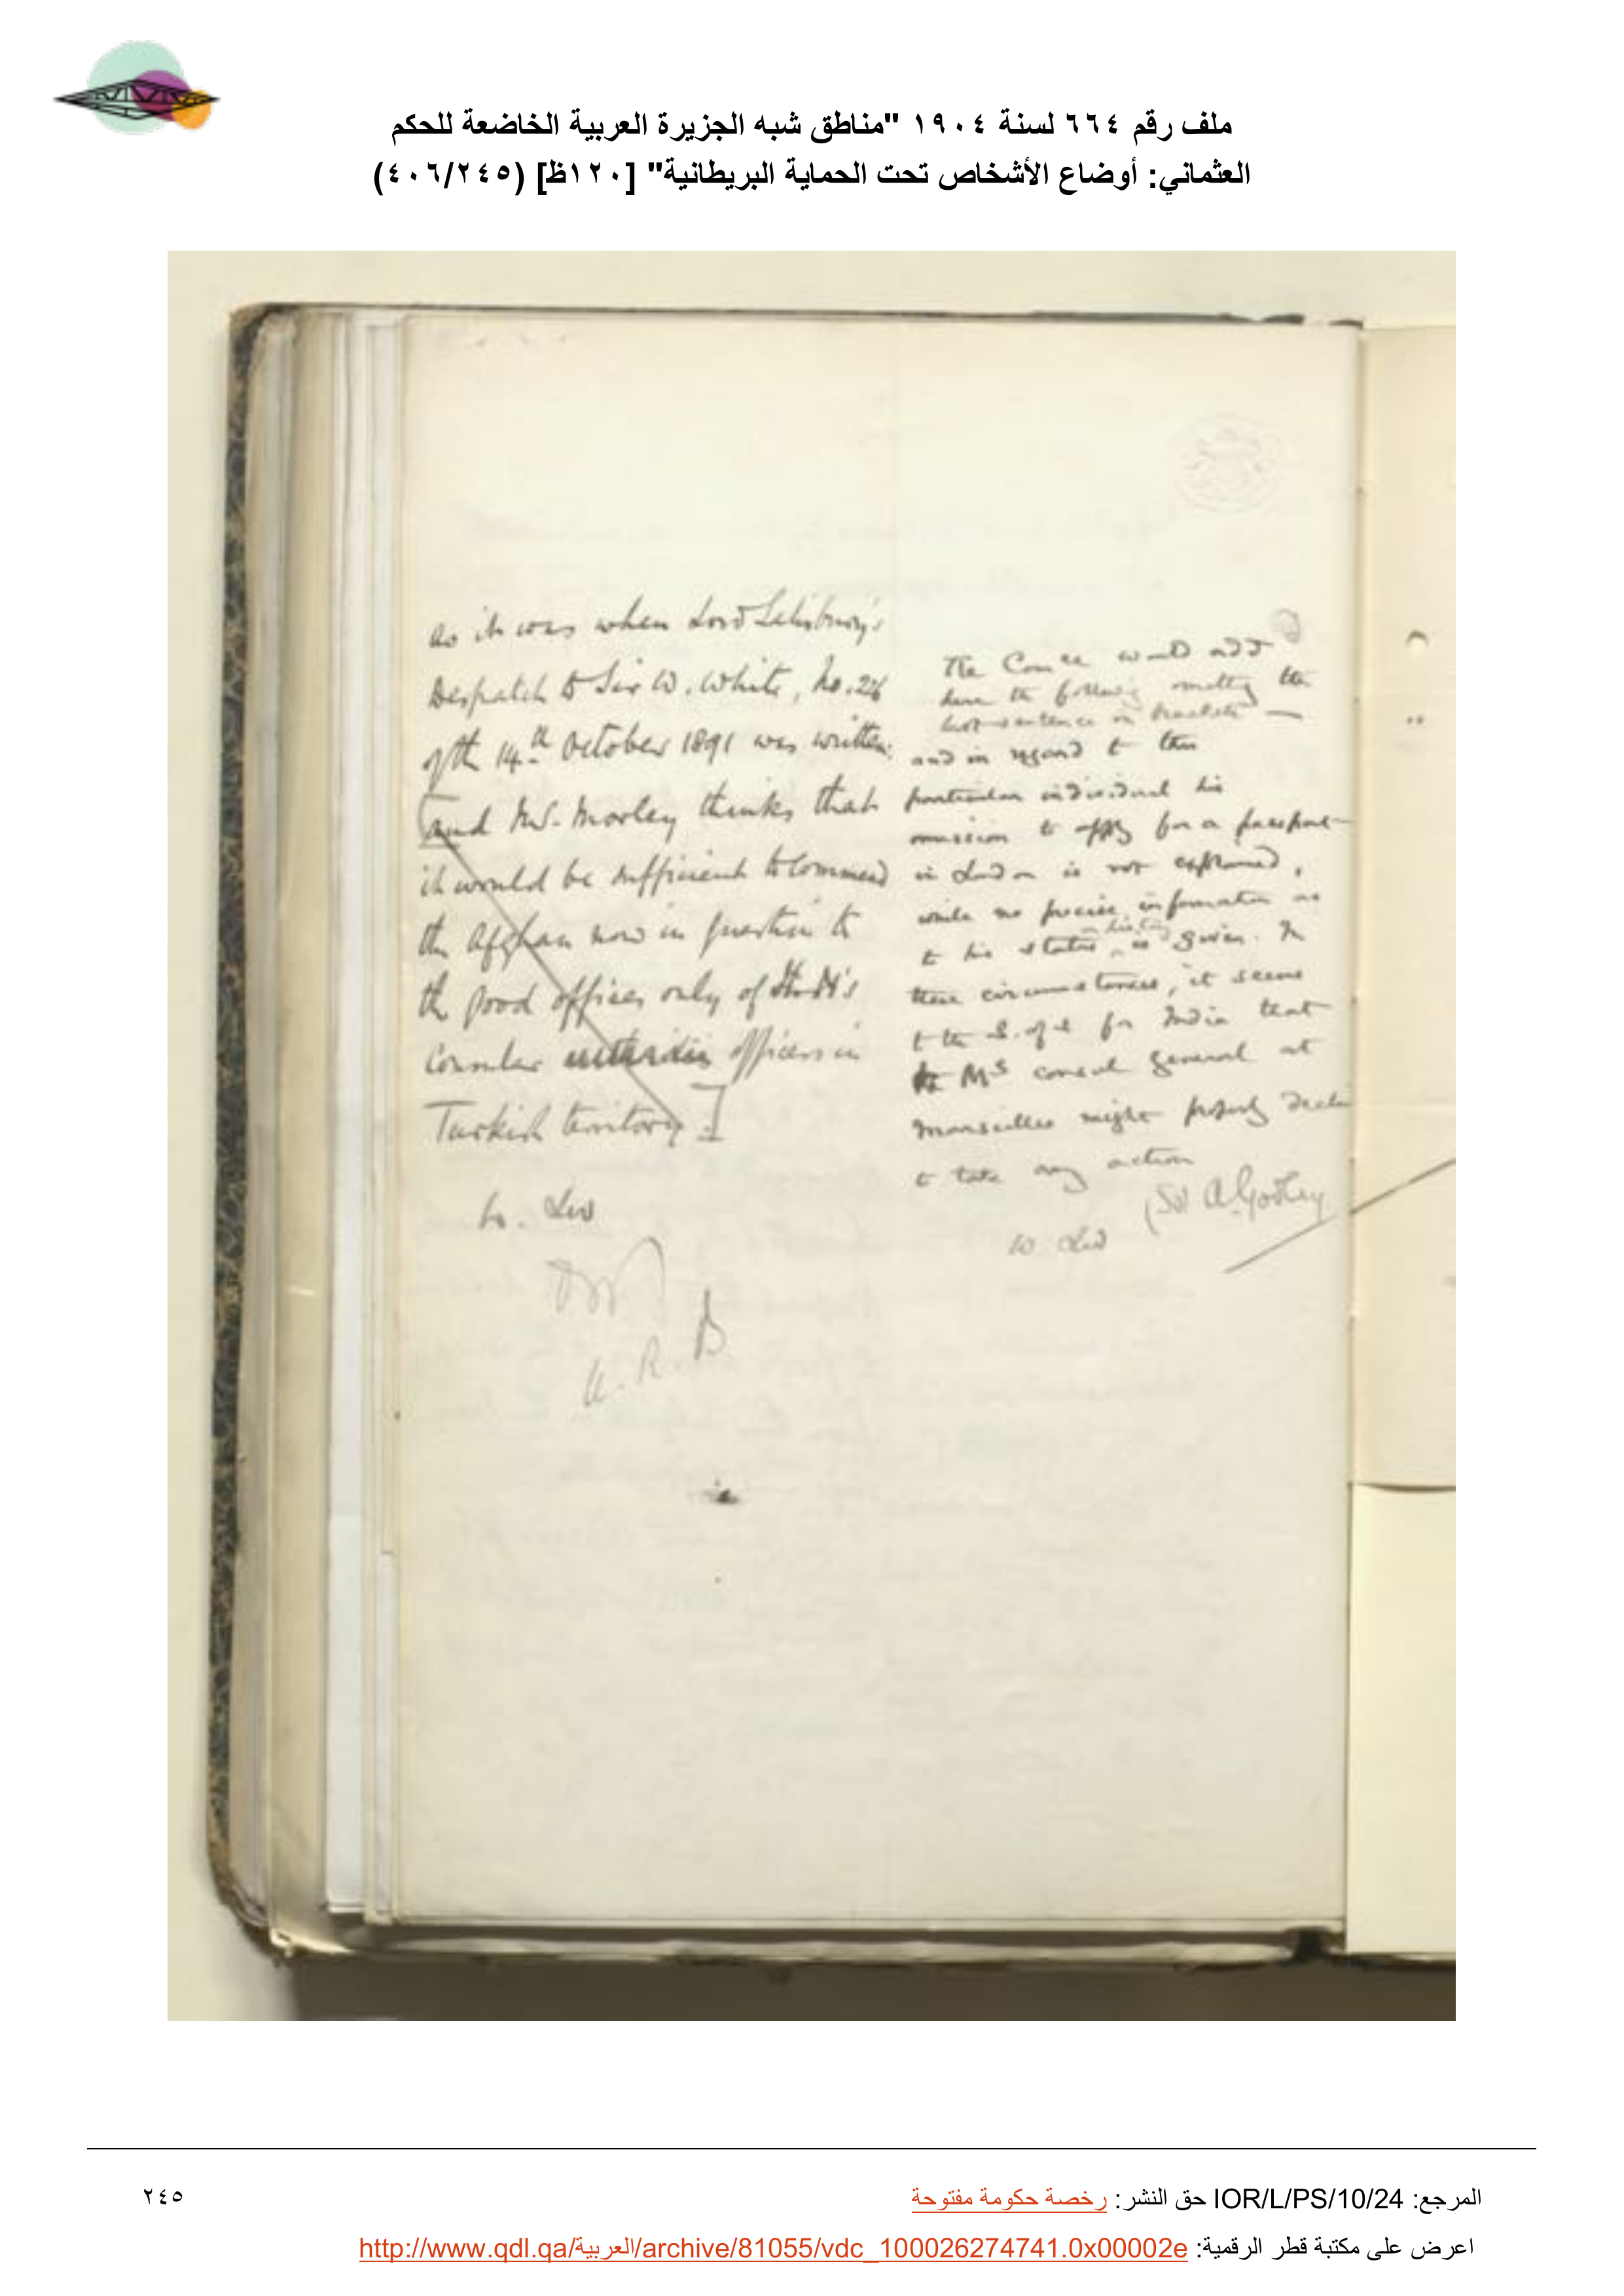 ملف رقم ٦٦٤ لسنة ١٩٠٤ "مناطق شبه الجزيرة العربية الخاضعة للحكم
العثماني: أوضاع الأشخاص تحت الحماية البريطانية" [١٢٠ظ] (٤٠٦/٢٤٥)
as it was when Lord Salisbury's
Despatch to Sir W. White, No.
of th 14th October 1891 was written:
[and Mr. Morley thinks that
it would be sufficient to commend
the Afghan now in question to
the good offices only of H.M.'s
Consular officers in
Turkish territory.]
The would add
here the following omitting the
last sentence in brackets —
and in regard to this
particular individual his
omission to apply for a passport
in London is not explained,
while no precise information as
to his status is given. In
these circumstances, it seems
to the S. of S for India that
H.M's consul general at
Marseilles might properly
to take any action
(Sd A. Godley
المرجع: IOR/L/PS/10/24 حق النشر: رخصة حكومة مفتوحة
٢٤٥
اعرض على مكتبة قطر الرقمية: http://www.qdl.qa/العربية/archive/81055/vdc_100026274741.0x00002e